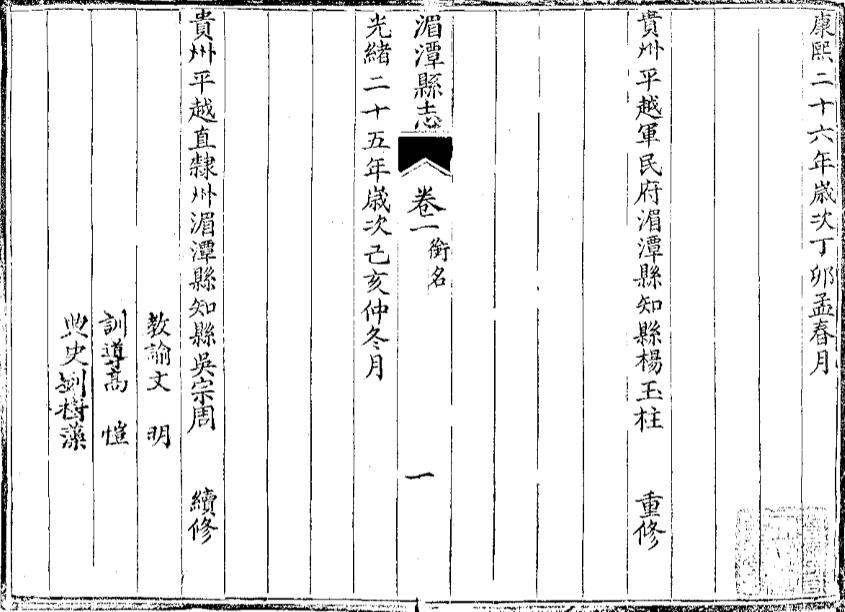 康熙二十六年歲次丁卯孟春月
貴州平越軍民府湄潭縣知縣楊玉柱 重修
湄潭縣志 卷一 銜名 一
光緒二十五年歲次己亥仲冬月
貴州平越直隸州湄潭縣知縣吳宗周 續修
教諭文 明
訓導高 愷
典史劉樹藻